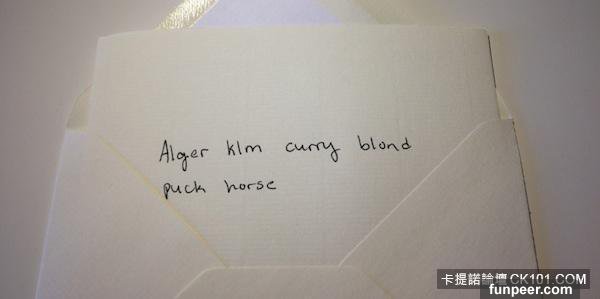 Alger klm curry blond
puck horse
卡提諾論壇 CK101.COM
funpeer.com